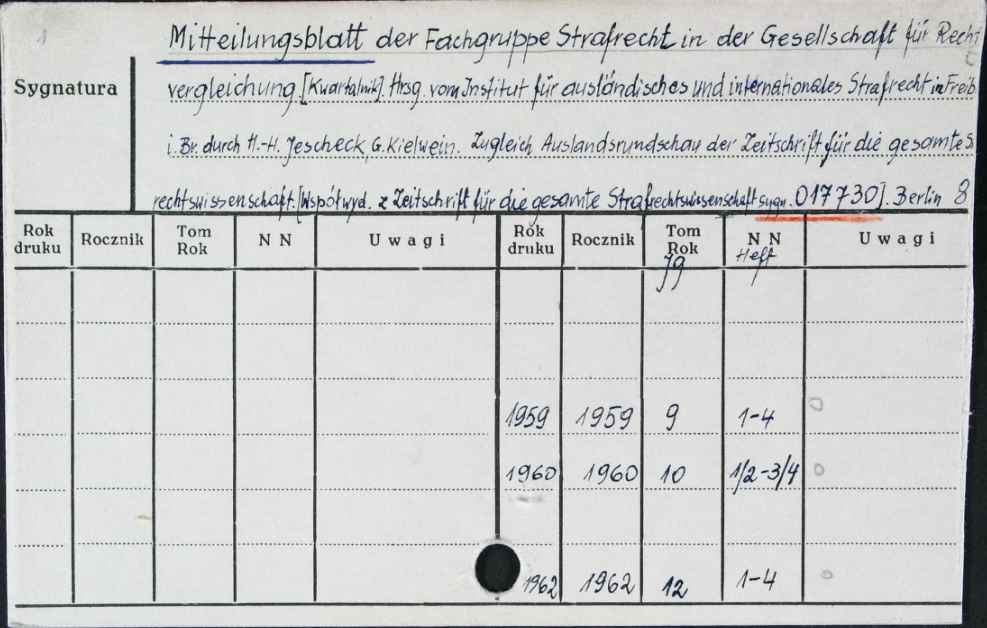 1
Mitteilungsblatt der Fachgruppe Strafrecht in der Gesellschaft für Rech
Sygnatura
vergleichung [Kwartalnik]. Hrsg. vom Institut für ausländisches und internationales Strafrecht in Freib
i. Br. durch H.-H. Jescheck, G. Kielwein. Zugleich Auslandsrundschau der Zeitschrift für die gesamte S
rechtswissenschaft. [Współwyd. z Zeitschrift für die gesamte Strafrechtswissenschaft sygn. 017730]. Berlin 8
Rok druku Rocznik Tom Rok N N Uwagi Rok druku Rocznik Tom Rok N N Uwagi
Jg Heft
1959 1959 9 1-4
1960 1960 10 1/2-3/4
1962 1962 12 1-4